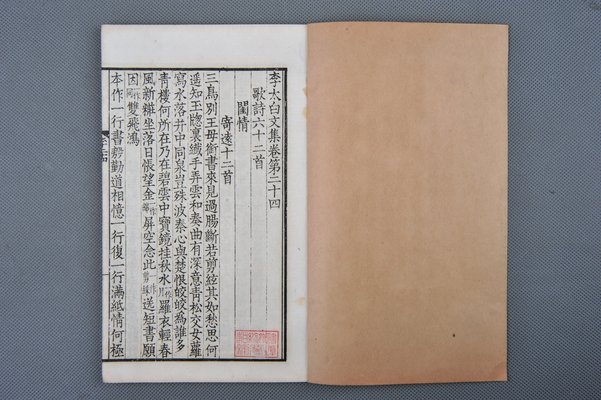 李太白文集卷第二十四
歌詩六十二首
閨情
寄遠十二首
三鳥別王母銜書來見過腸斷若剪絃其如愁思何
遥知玉窻裏纖手弄雲和奏曲有深意青松交女蘿
寫水落井中同泉豈殊波秦心與楚恨皎皎為誰多
青樓何所在乃在碧雲中寶鏡挂秋水一作月羅衣輕春
風新糚坐落日悵望金一作錦屏空念此一作剪綵送短書願
因一作同雙飛鴻
本作一行書殷勤道相憶一行復一行滿紙情何極